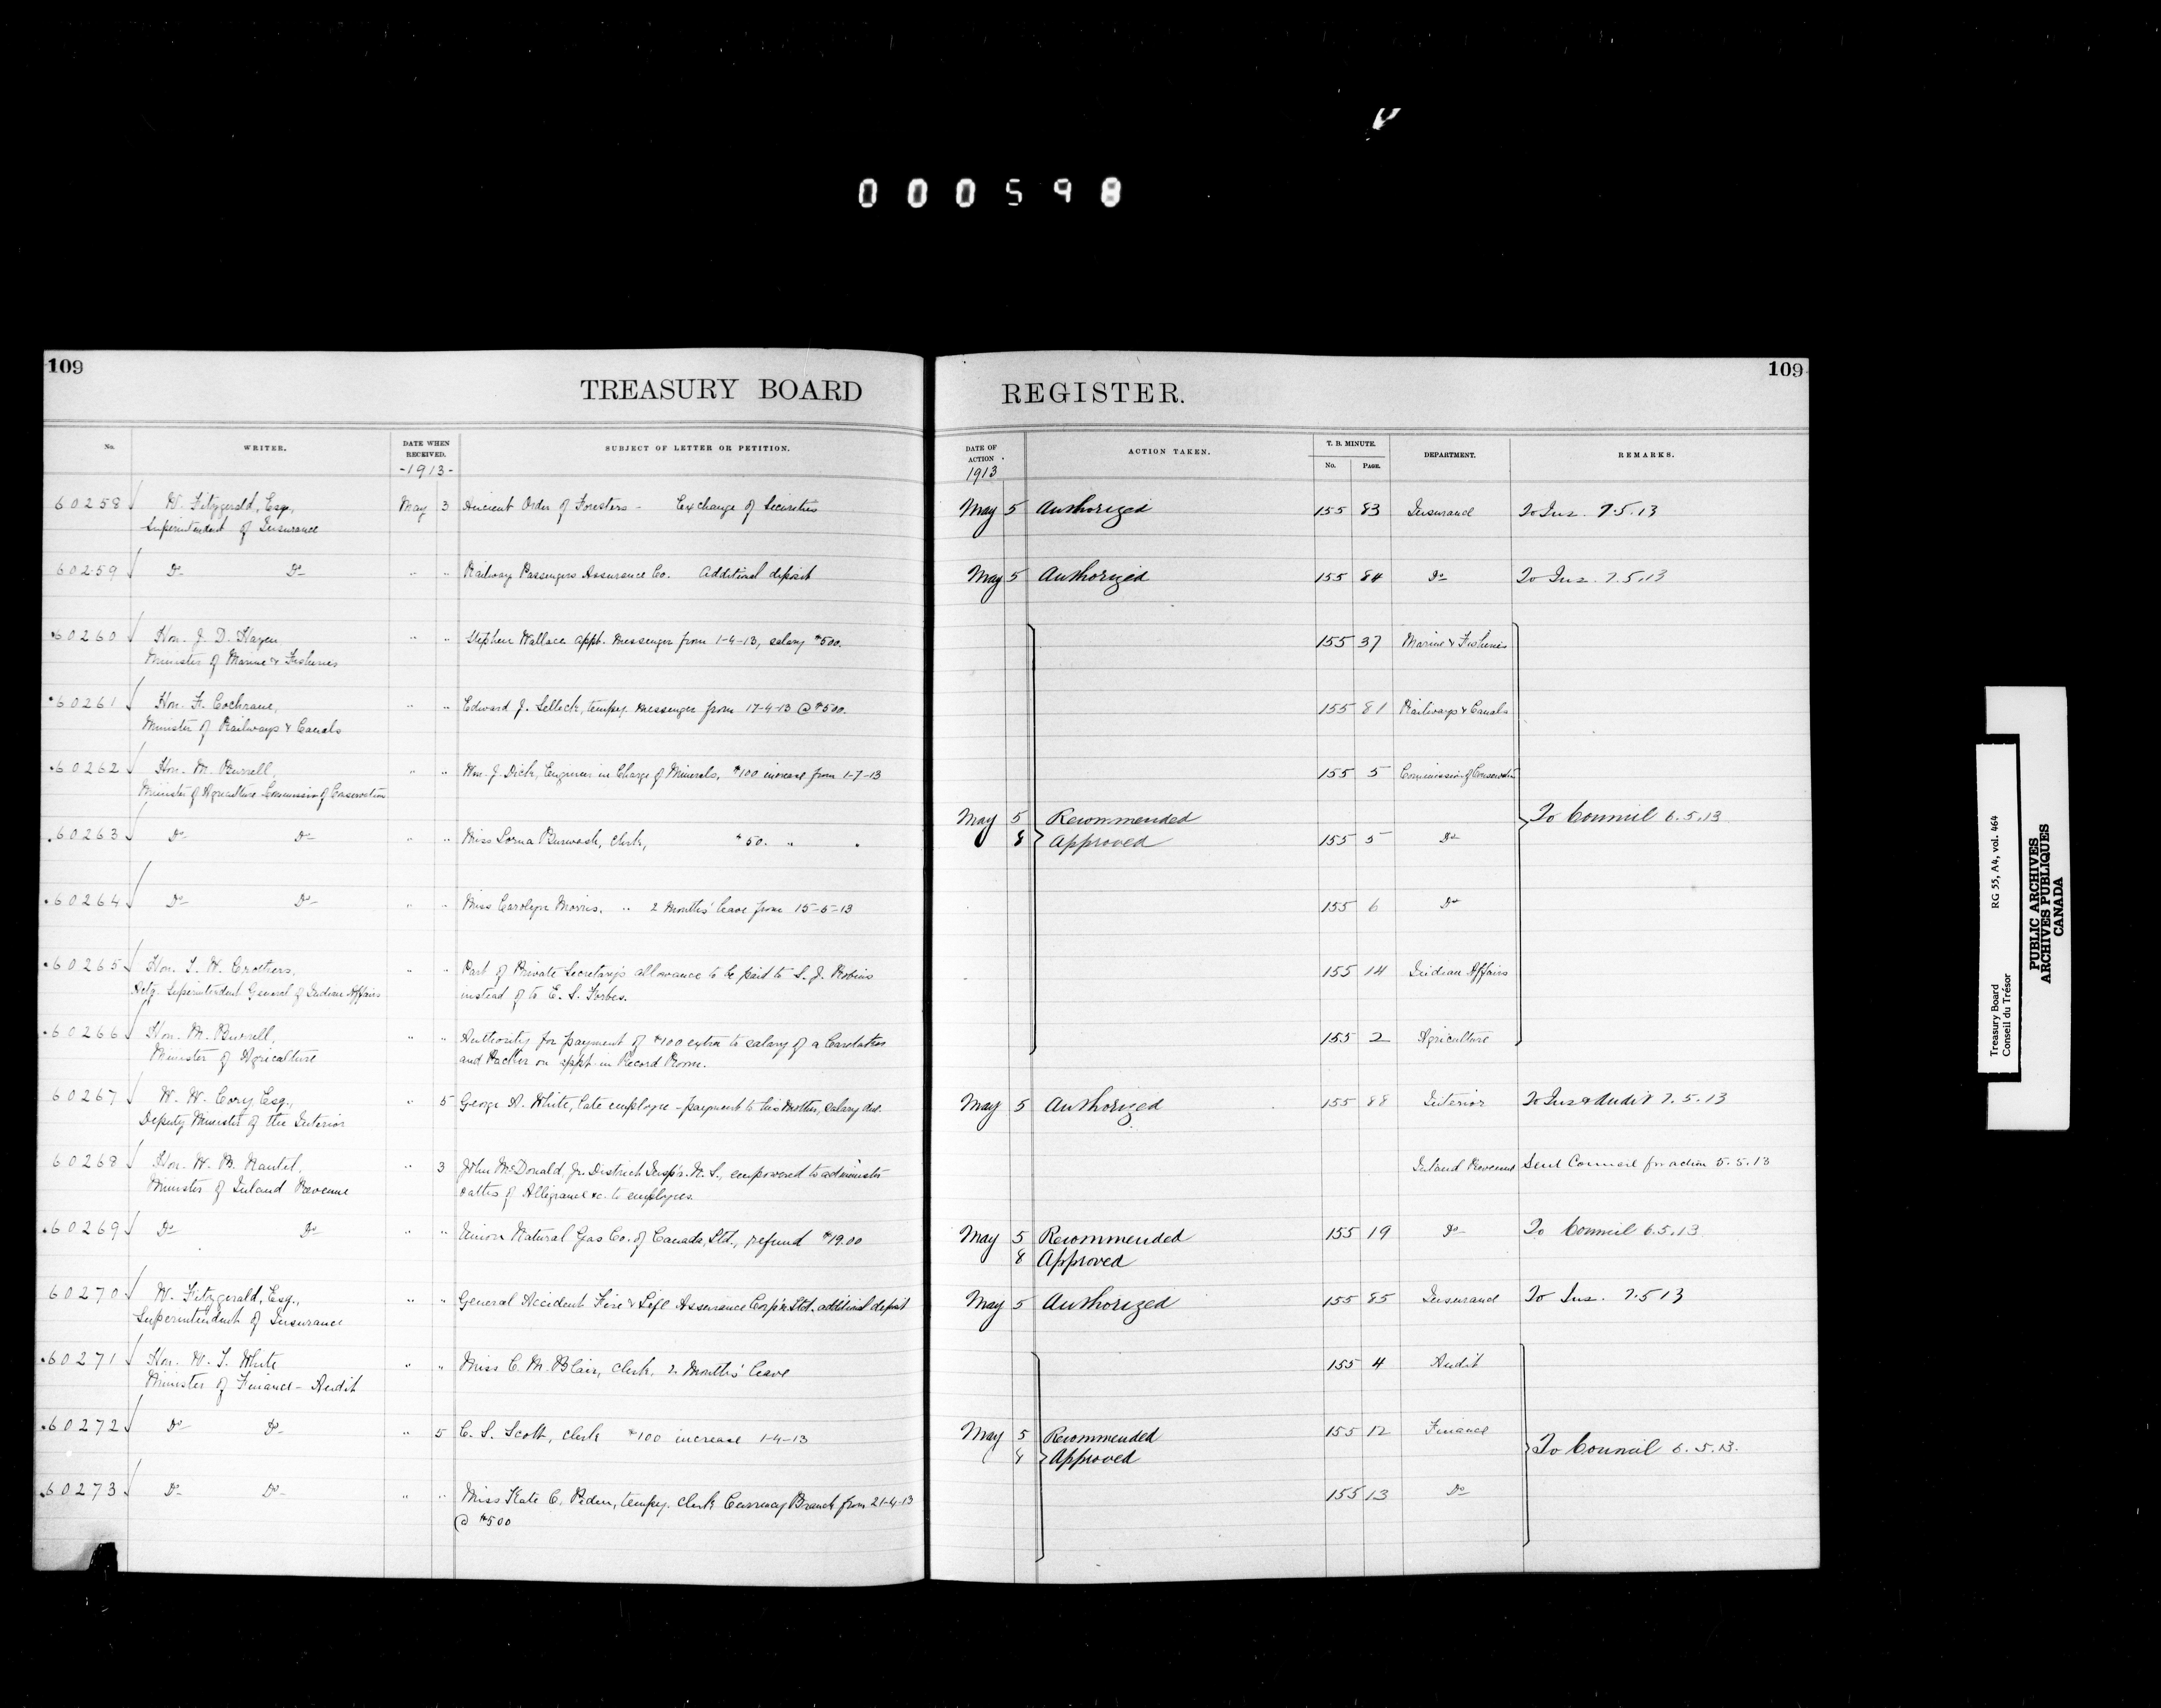 000598
109
TREASURY BOARD
REGISTER.
109
No.
WRITER.
DATE WHEN RECEIVED.
-1913-
SUBJECT OF LETTER OR PETITION.
DATE OF ACTION
1913
ACTION TAKEN.
T. B. MINUTE.
No.
PAGE.
DEPARTMENT.
REMARKS.
60258 W. Fitzgerald, Esq., May 3 Ancient Order of Foresters - Exchange of Securities May 5 Authorized 155 83 Insurance To Ins. 7.5.13
Superintendent of Insurance
60259 Do Do " " Railway Passengers Assurance Co. Additional deposit May 5 Authorized 155 84 Do To Ins. 7.5.13
60260 Hon. J. D. Hazen, " " Stephen Wallace appt. Messenger from 1-4-13, salary $500. 155 37 Marine & Fisheries
Minister of Marine & Fisheries
60261 Hon. F. Cochrane, " " Edward J. Selleck, tempy. messenger from 17-4-13 @ $500. 155 81 Railways & Canals
Minister of Railways & Canals
60262 Hon. M. Burrell, " " Wm. J. Dick, Engineer in Charge of Minerals, $100 increase from 1-7-13 155 5 Commission of Conservation
Minister of Agriculture Commission of Conservation
May 5 Recommended To Council 6.5.13
60263 Do Do " " Miss Lorna Burwash, Clerk, $50. " 8 Approved 155 5 Do
60264 Do Do " " Miss Carolyn Morris. " 2 Months' leave from 15-5-13 155 6 Do
60265 Hon. T. W. Crothers, " " Part of Private Secretary's allowance to be paid to S. J. Robins 155 14 Indian Affairs
Actg. Superintendent General of Indian Affairs instead of to E. S. Forbes.
60266 Hon. M. Burrell, " " Authority for payment of $100 extra to salary of a Caretaker 155 2 Agriculture
Minister of Agriculture and Packer on appt. in Record Room.
60267 W. W. Cory Esq., " 5 George A. White, late employee - payment to his Mother, salary due. May 5 Authorized 155 88 Interior To Ins & Audit 7.5.13
Deputy Minister of the Interior
60268 Hon. W. B. Nantel, " 3 John McDonald, Jr. District Insp'r. N. S., empowered to administer Inland Revenue Sent Council for action 5.5.13
Minister of Inland Revenue oaths of Allegiance &c. to employees.
60269 Do Do " " Union Natural Gas Co. of Canada, Ltd., refund $19.00 May 5 Recommended 155 19 Do To Council 6.5.13
8 Approved
60270 W. Fitzgerald, Esq., " " General Accident Fire & Life Assurance Corp'n Ltd. additional deposit May 5 Authorized 155 85 Insurance To Ins. 7.5 13
Superintendent of Insurance
60271 Hon. W. T. White " " Miss C. M. Blair, Clerk. 2 Months' leave 155 4 Audit
Minister of Finance - Audit
60272 Do Do " 5 C. S. Scott, Clerk $100 increase 1-4-13 May 5 Recommended 155 12 Finance
8 Approved To Council 6.5.13.
60273 Do Do " " Miss Kate C. Peden, tempy. clerk Currency Branch from 21-4-13 155 13 Do
@ $500
Treasury Board RG 55, A4, vol. 464
Conseil du Trésor
PUBLIC ARCHIVES
ARCHIVES PUBLIQUES
CANADA